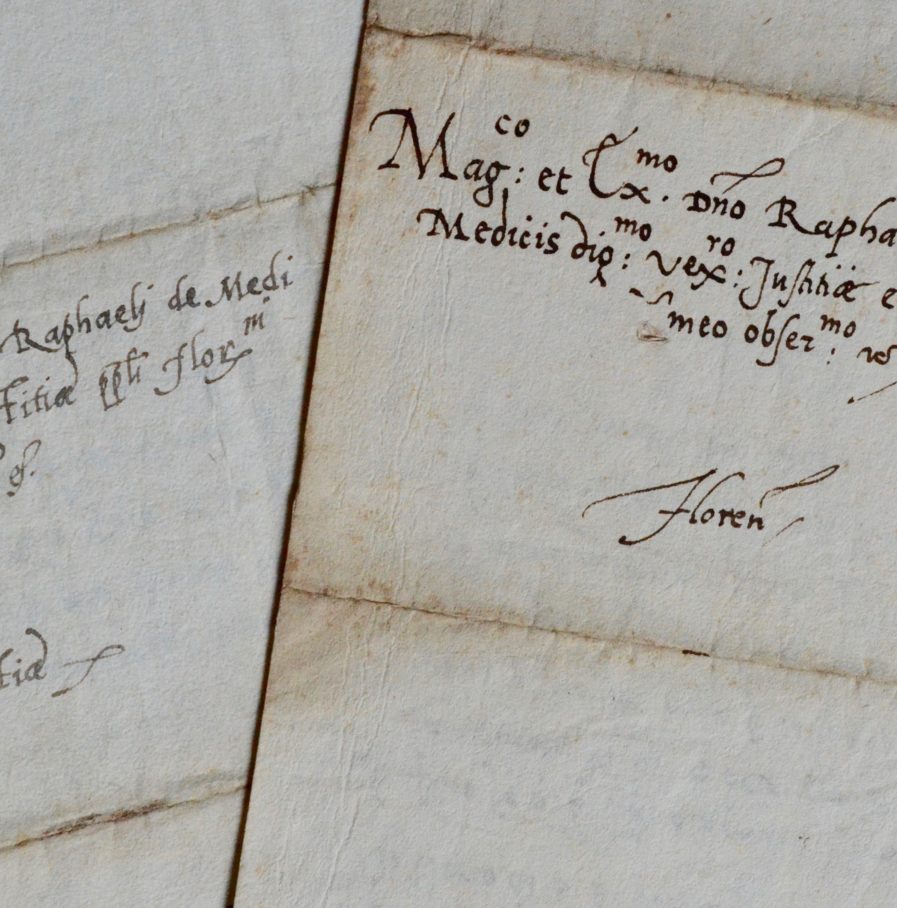 Raphaelj de Medi
titiæ ppli Flor^ni
tiæ
Mag:^co et Ex.^mo Dño Rapha
Medicis dig:^mo vex:^ro Justitiæ e
meo obser:^mo
Floren